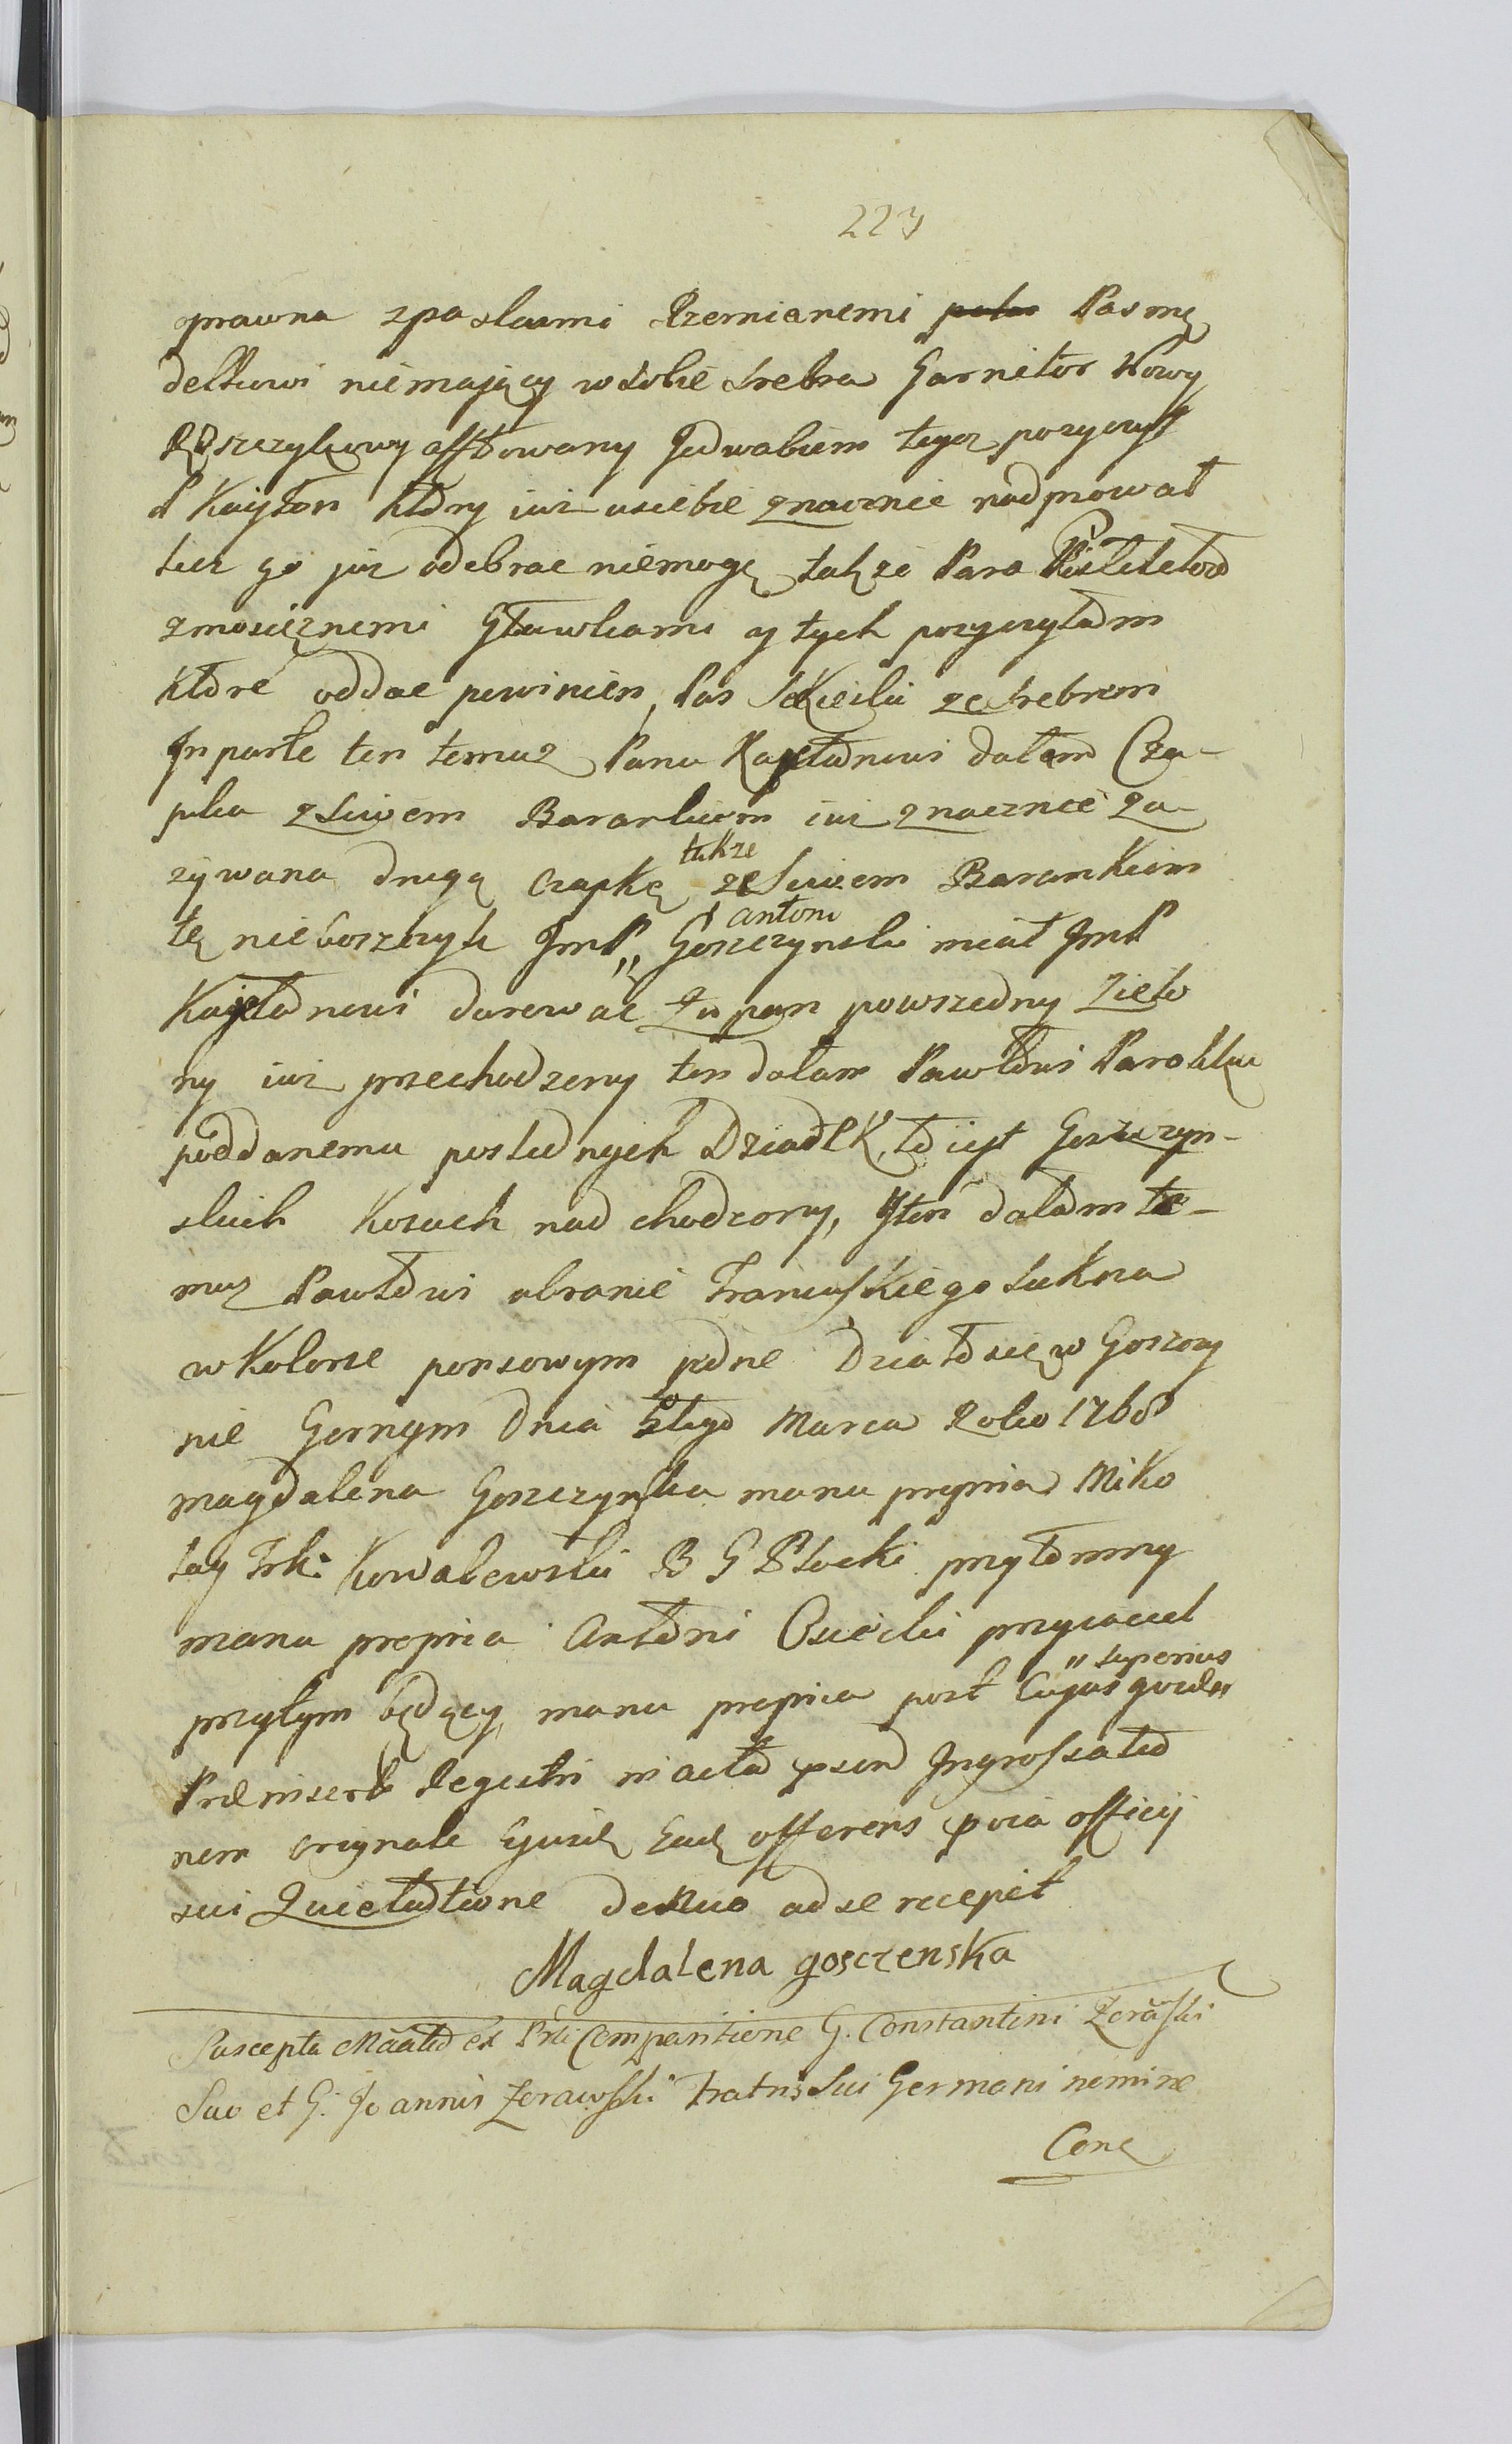 223
oprawna zpaskami Rzemianemi Pas mę
delkowi niemaiący w sobie srebra Garnitor Nowy
Rząszczykowy afftowany Jedwabiem tegoz pozyczył
P Kaiyton ktory iuz usiebie znacznie nadpsował
lecz go juz odebrac niemogę także Para Pistoletow
zmosięznemi Głowkami y tych pozyczyłam
ktore oddac powinien, Pas Sekieski ze srebrem
In parte ten temuz Panu Kajetanowi dałam Cza-
pka zsiwem Barankiem iuz znacznie za-
zywana drugą czapkę także ze Siwem Barankiem
tę nieboszczyk JmP„ Antoni Goszczynski miał JmP
Kajetanowi darować Zupan powszedny Zielo
ny iuz przechodzony ten dałam Pawłowi Parobku
poddanemu posladnych Dziadek, to iest Goszczyn-
skich Kozuch nad chodzony, y ten dałam te-
muz Pawłowi ubranie Francuskiego sukna
w kolorze ponsowym jedne Działo się w Goszczy
nie Gornym Dnia 5tego Marca Roku 1768
Magdalena Goszczynska manu propria Miko
łay Frk: Kowalewski B G Płocki przytomny
manu propria Antoni Osiecki przyiaciel
przytym będący manu propria post Cujus quidem „superius
Prae inserti Regestri in acta psend Ingrossatio
nem originale Ejusd Eund offerens poia officij
sui Quietatione denuo ad se recepit
Magdalena gosczenska
Suscepta Maatio ex Prli Comparitione G. Constantini Zerawski
Suo et G. Joannis Zerawski Fratris Sui Germani nomine
Conc